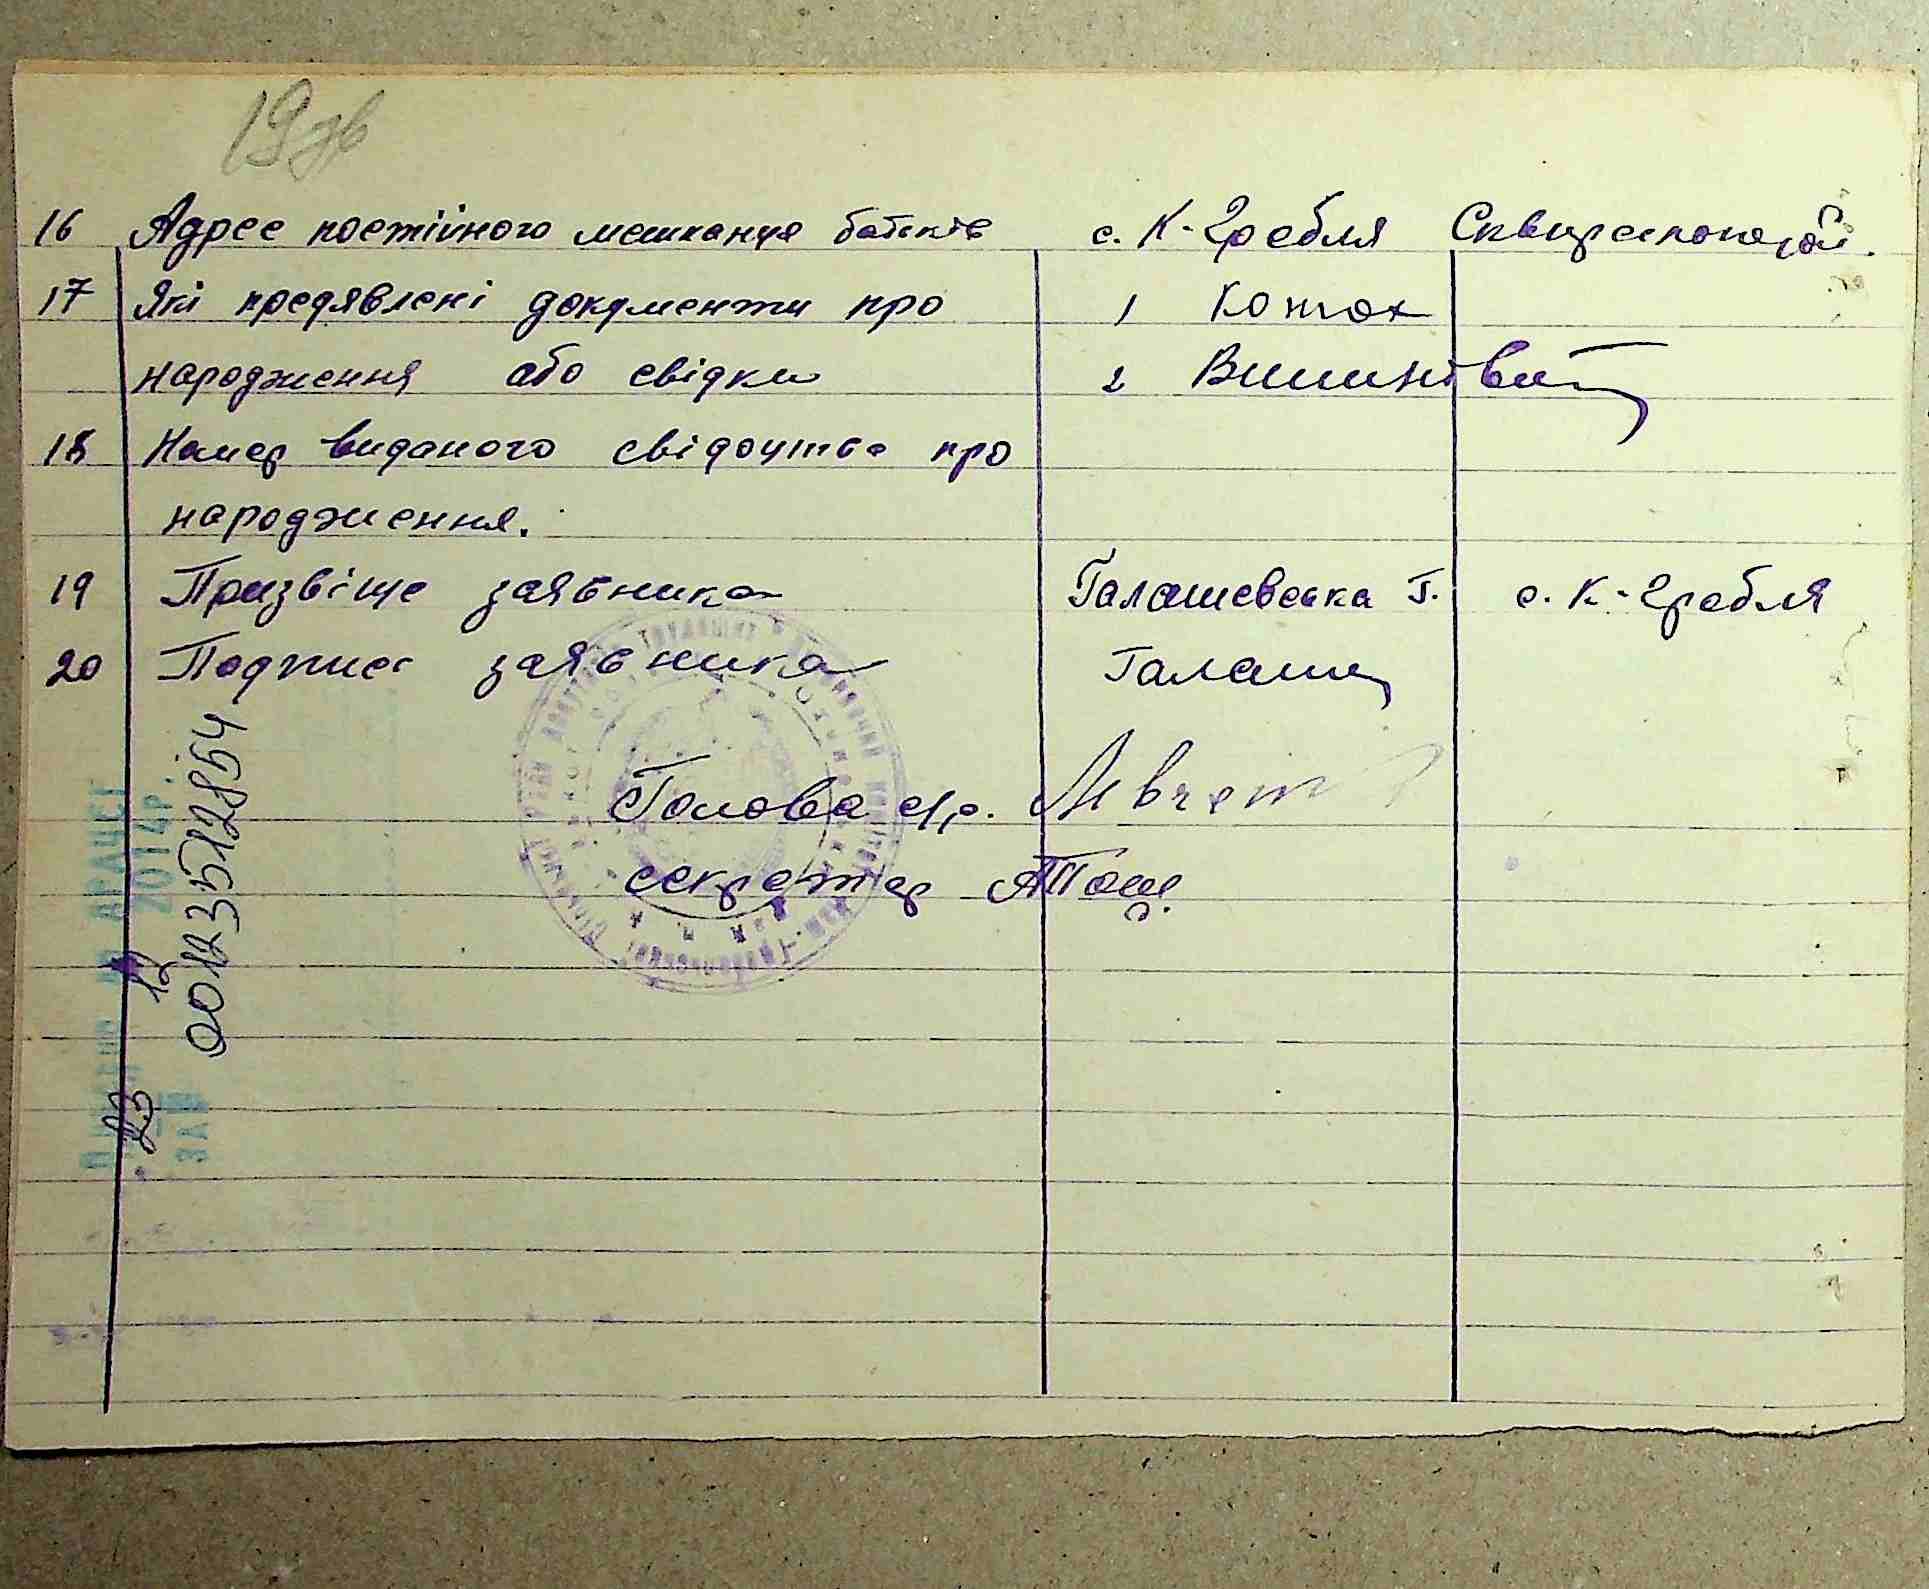 19зв
16 Адрес постійного мешканця батьків с. К-Гребля Сквирського рай.
17 Які предявлені документи про 1 Котох
народження або свідки 2
18 Номер виданого свідоцтва про
народження.
19 Призвіще заявника Галашевська Г. с. К-Гребля
20 Подпис заявника Галаш
Голова с/р.
секретар
00123512854
23 12 2014р.